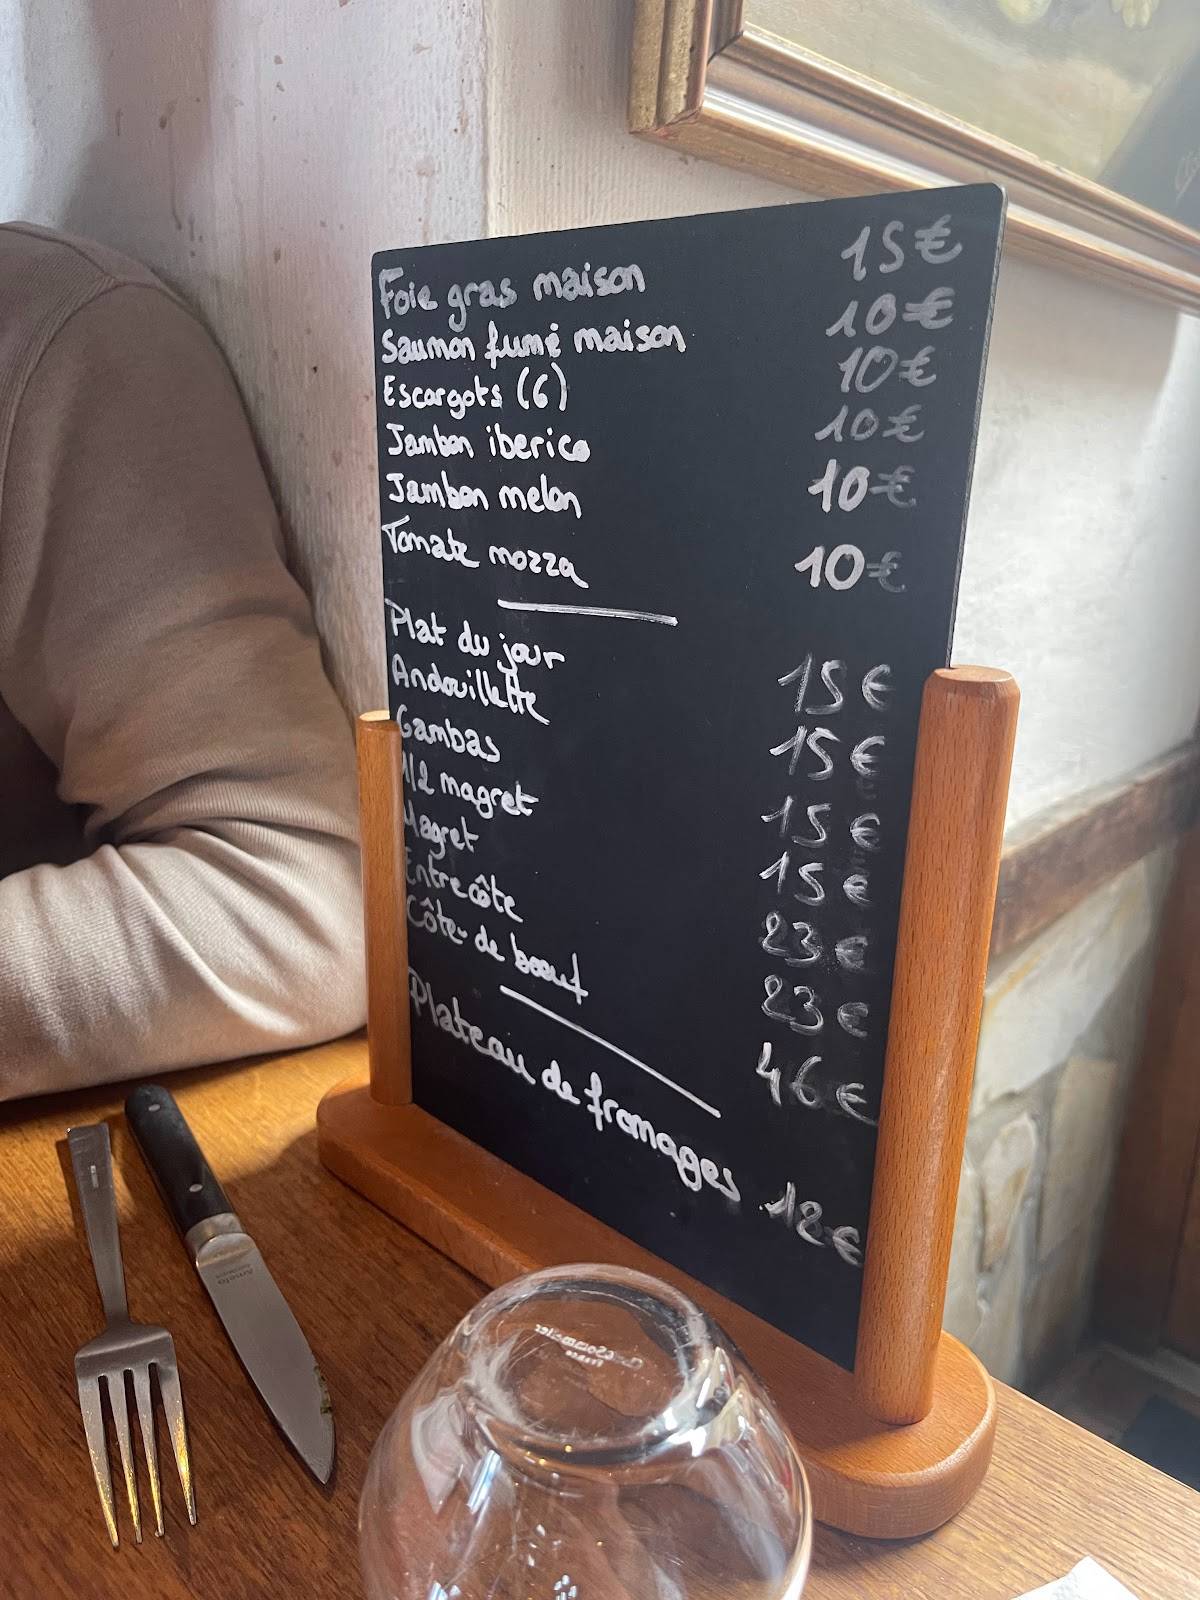 Foie gras maison 15€
Saumon fumé maison 10€
Escargots (6) 10€
Jambon iberico 10€
Jambon melon 10€
Tomate mozza 10€
Plat du jour 15€
Andouillette 15€
Gambas 15€
1/2 magret 15€
Magret 23€
Entrecôte 23€
Côte de boeuf 46€
Plateau de fromages 12€
Amefa
France